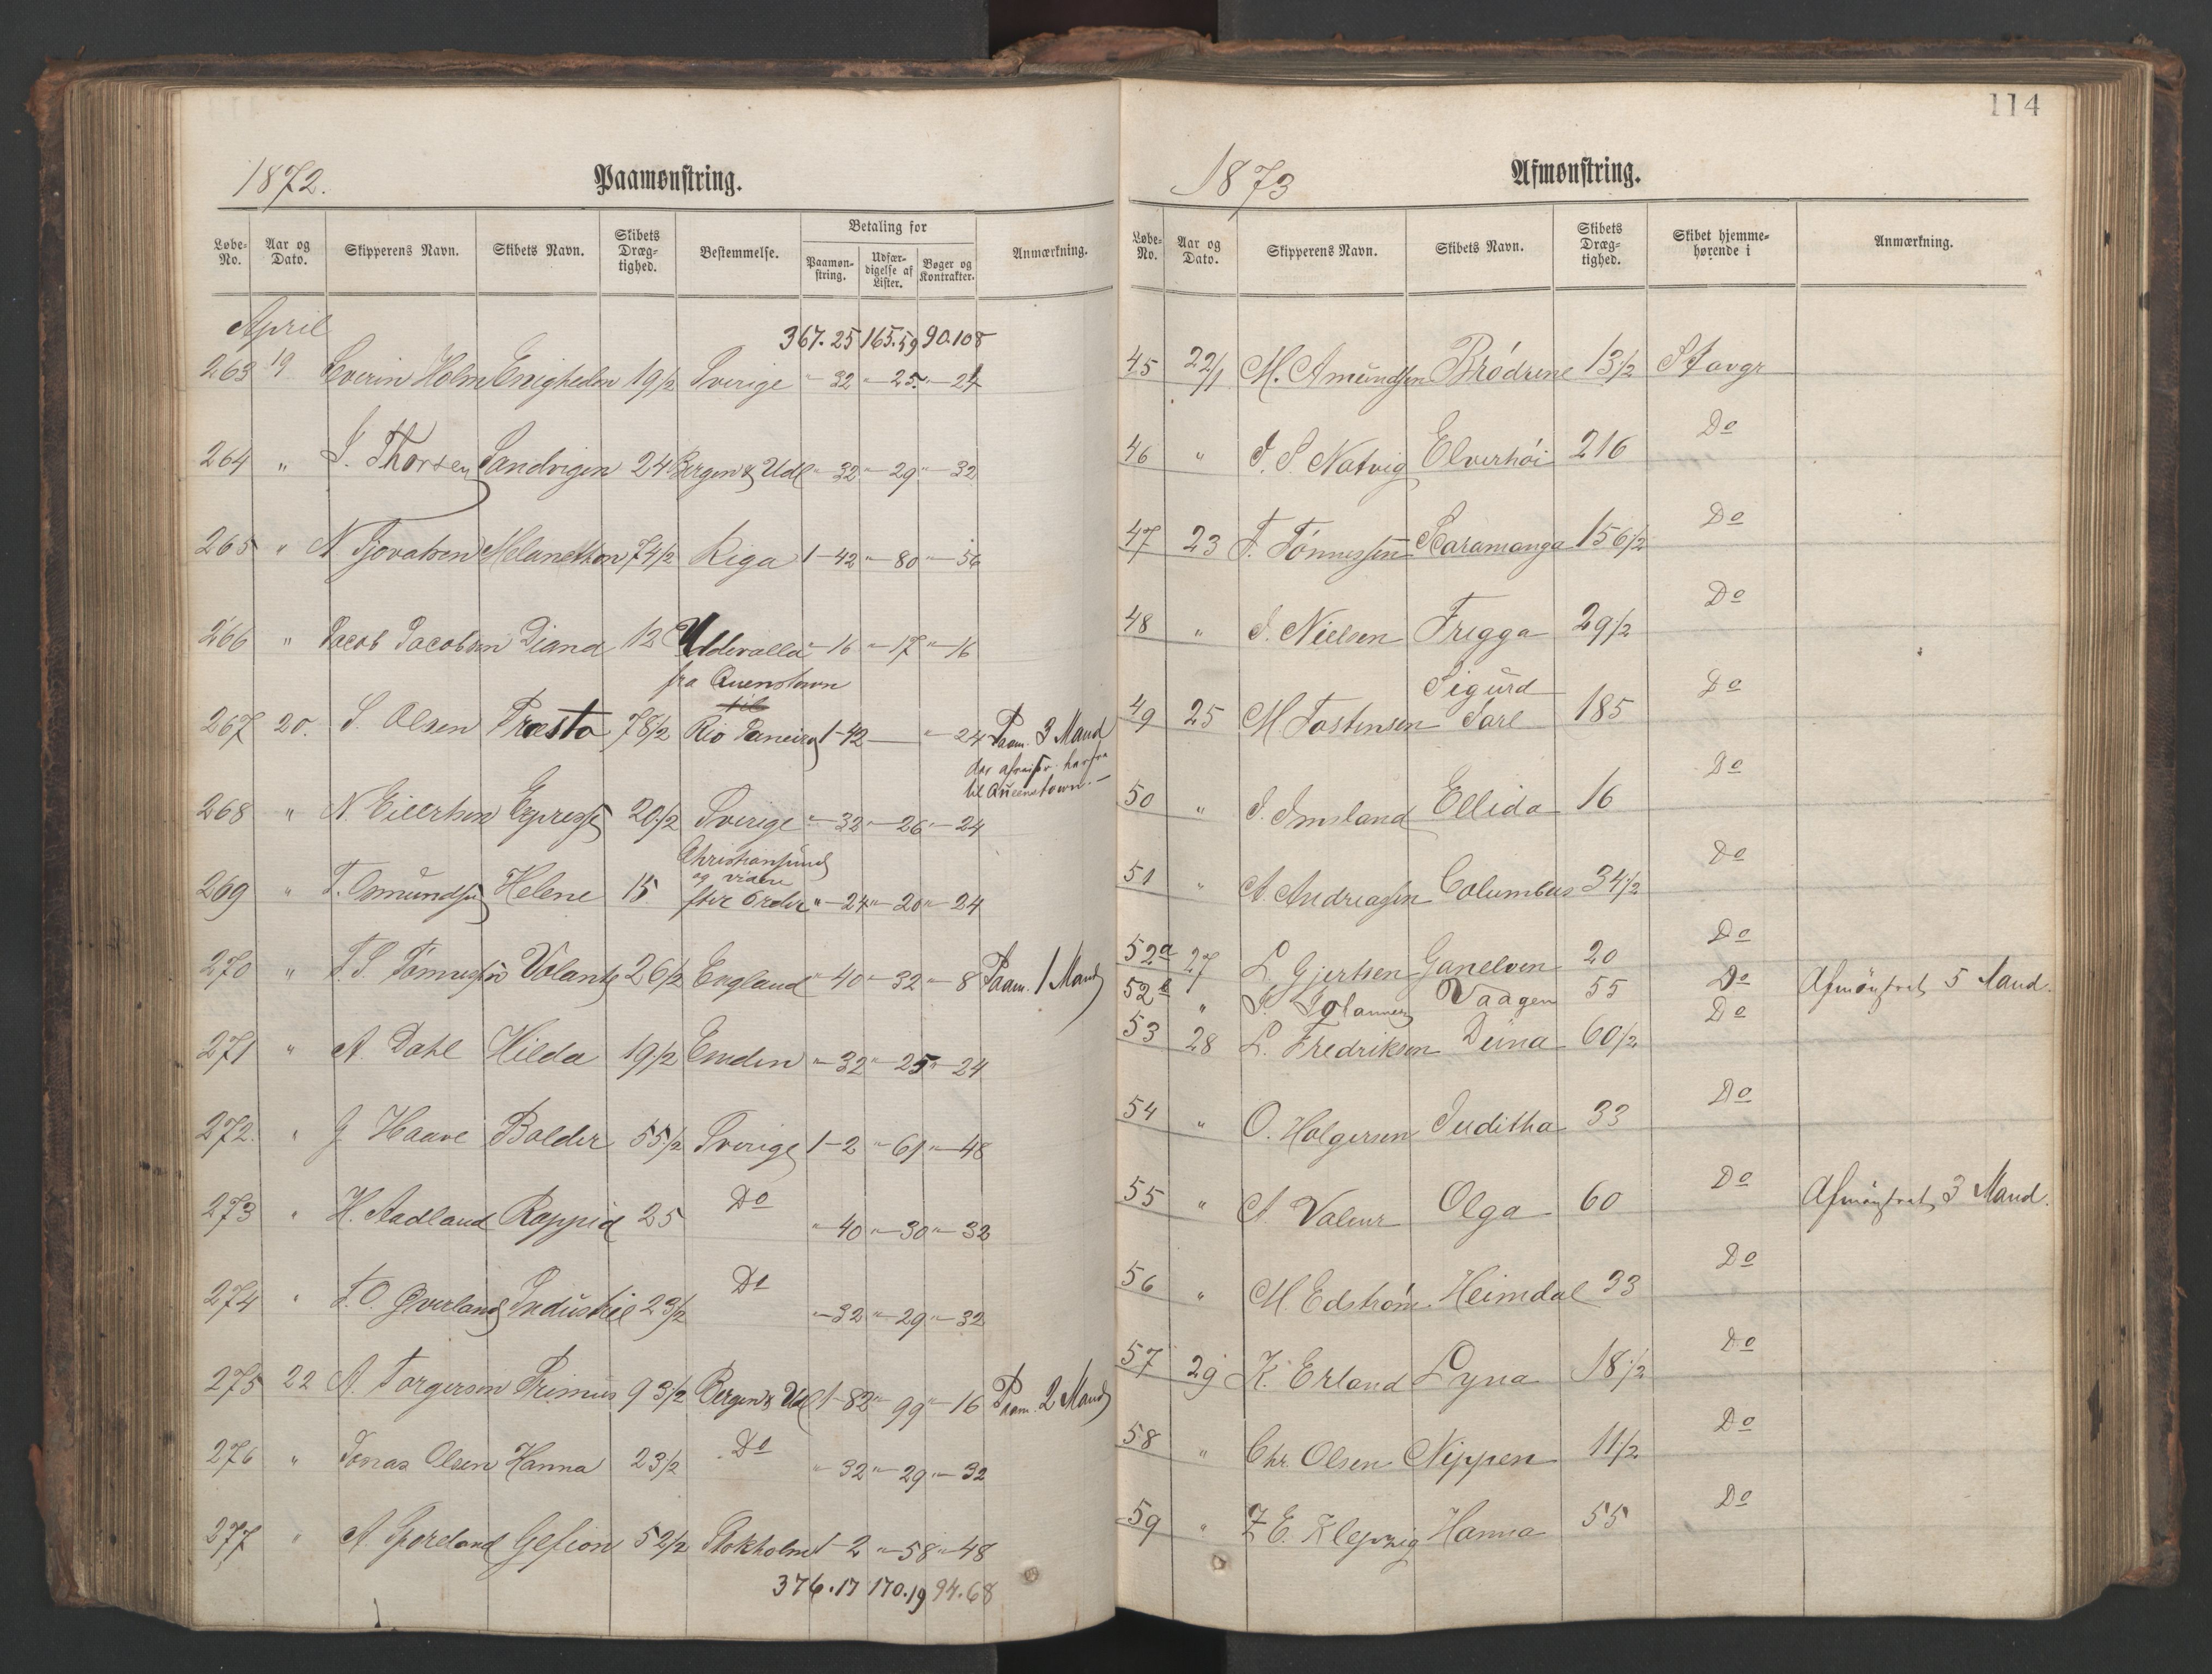 114
1872. Paamønstring.
Løbe-No. Aar og Dato. Skipperens Navn. Skibets Navn. Skibets Dræg-tighed. Bestemmelse. Betaling for Paamøn-string. Udfær-digelse af Lister. Bøger og Kontrakter. Anmærkning.
April 367.25 165.59 90.108
263 19 Severin Holm Enigheden 19 1/2 Sverige " - 32 " - 25 " - 24
264 " S. Thorsen Sandvigen 24 Bergen & Udl " - 32 " - 29 " - 32
265 " N. Melancthon 74 1/2 Riga 1 - 42 " - 80 " - 56
266 " Jacob Jacobsen Diana 12 Uddevalla " - 16 " - 17 " - 16
fra Queenstown
til
267 20. S. Olsen Præsto 78 1/2 Rio Janeiro 1 - 42 — " - 24 Paam. 3 Mand
der afreiser herfra
til Queenstown. —
268 " N. Eilertsen Express 20 1/2 Sverige " - 32 " - 26 " - 24
Christiansund
og videre
269 " T. Osmundsen Helene 15 for Order " - 24 " - 20 " - 24
270 " T. S. Tønnessen Volante 26 1/2 England " - 40 " - 32 " - 8 Paam. 1 Mand
271 " A. Dahl Hilda 19 1/2 Emden " - 32 " - 25 " - 24
272. " J Haave Balder 55 1/2 Sverige 1 - 2 " - 61 " - 48
273 " H. Aadland Rappid 25 Do " - 40 " - 30 " - 32
274 " T. O. Øverland Industrie 23 1/2 Do " - 32 " - 29 " - 32
275 22 A. Torgersen Primus 93 1/2 Bergen & Udl 1 - 82 " - 99 " - 16 Paam. 2 Mand
276 " Jonas Olsen Hanna 23 1/2 Do " - 32 " - 29 " - 32
277 " A. Gefion 52 1/2 Stokholm 1 - 2 " - 58 " - 48
376.17 170.19 94.68
1873 Afmønstring.
Løbe-No. Aar og Dato. Skipperens Navn. Skibets Navn. Skibets Dræg-tighed. Skibet hjemme-hørende i Anmærkning.
45 22/1 M. Amundsen Brødrene 13 1/2 Stavgr
46 " J. S. Natvig Elverhøi 216 Do
47 23 T. Tønnessen Scaramanga 156 1/2 Do
48 " J. Nielsen Frigga 29 1/2 Do
Sigurd
49 25 M. Tostensen Jarl 185 Do
50 " J. Imsland Ellida 16 Do
51 " A. Andreassen Columbus 34 1/2 Do
52a 27 L. Gjertsen Ganelven 20 Do
52b " J. Vaagen 55 Do Afmønstret 5 Mand.
53 28 L. Fredriksen Duna 60 1/2 Do
54 " O. Holgersen Juditha 33 Do
55 " A Valeur Olga 60 Do Afmønstret 3 Mand.
56 " M. Edstrøm Heimdal 33 Do
57 29 K. Erland Lyna 18 1/2 Do
58 " Chr. Olsen Nippen 11 1/2 Do
59 " Z E. Klepzig Hanna 55 Do